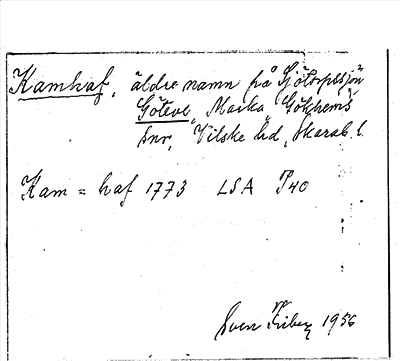 Kamhaf, äldre namn på Sjötorpssjön
Göteve, Marka, Gökhems
snr, Vilske hd, Skarab. l.
Kam = haf 1773 LSA P40
Sven Friberg 1956